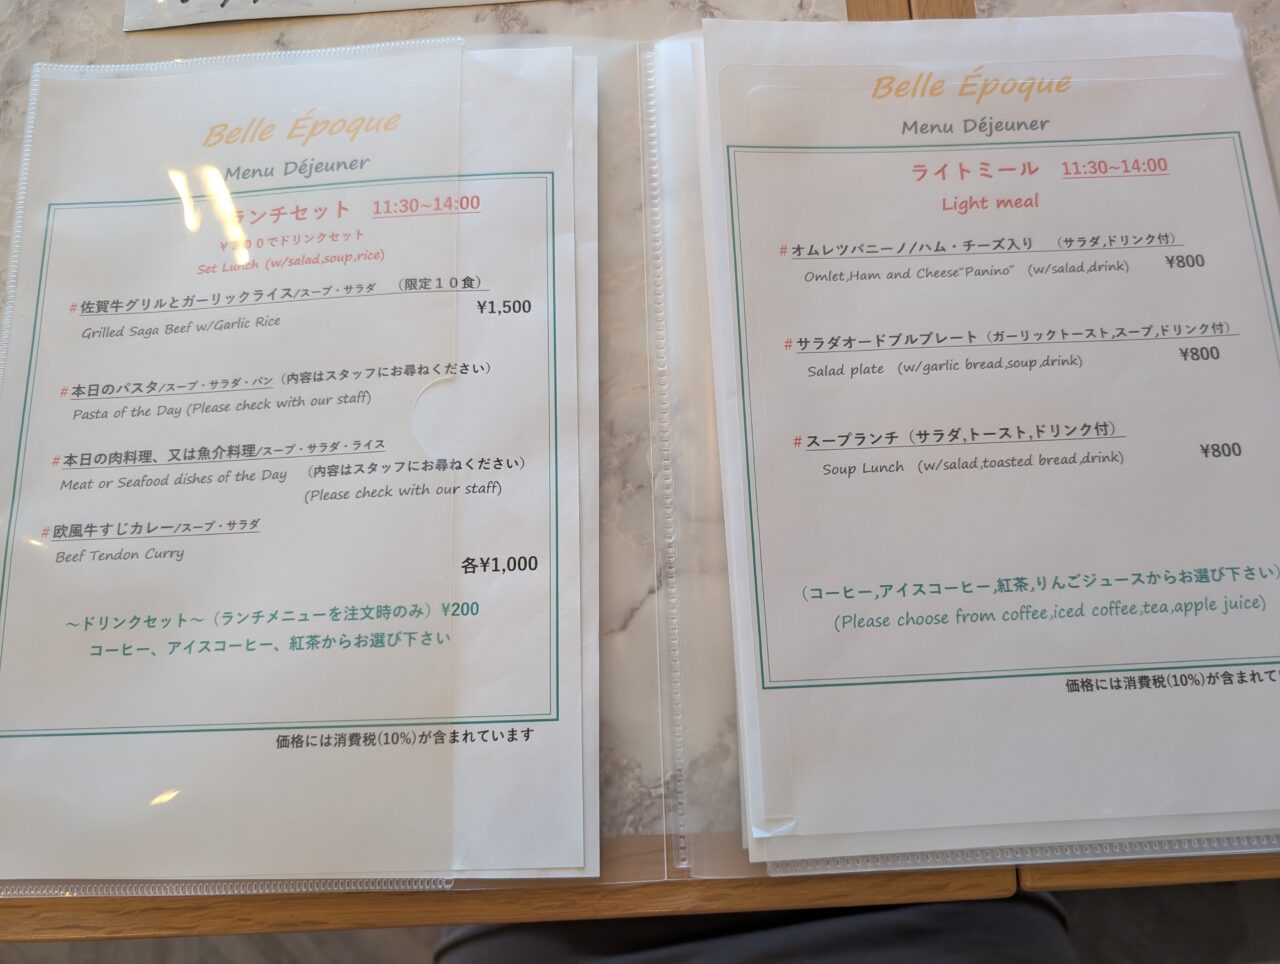 Belle Époque
Menu Déjeuner
ランチセット 11:30~14:00
¥200でドリンクセット
Set Lunch (w/salad,soup,rice)
#佐賀牛グリルとガーリックライス/スープ・サラダ （限定１０食）
¥1,500
Grilled Saga Beef w/Garlic Rice
#本日のパスタ/スープ・サラダ・パン（内容はスタッフにお尋ねください）
Pasta of the Day (Please check with our staff)
#本日の肉料理、又は魚介料理/スープ・サラダ・ライス
Meat or Seafood dishes of the Day （内容はスタッフにお尋ねください）
(Please check with our staff)
#欧風牛すじカレー/スープ・サラダ
Beef Tendon Curry
各¥1,000
～ドリンクセット～（ランチメニューを注文時のみ）¥200
コーヒー、アイスコーヒー、紅茶からお選び下さい
価格には消費税(10%)が含まれています
Belle Époque
Menu Déjeuner
ライトミール 11:30~14:00
Light meal
#オムレツパニーノ/ハム・チーズ入り （サラダ,ドリンク付）
Omlet,Ham and Cheese"Panino" (w/salad,drink) ¥800
#サラダオードブルプレート（ガーリックトースト,スープ,ドリンク付）
Salad plate (w/garlic bread,soup,drink) ¥800
#スープランチ（サラダ,トースト,ドリンク付）
Soup Lunch (w/salad,toasted bread,drink) ¥800
（コーヒー,アイスコーヒー,紅茶,りんごジュースからお選び下さい）
(Please choose from coffee,iced coffee,tea,apple juice)
価格には消費税(10%)が含まれてい